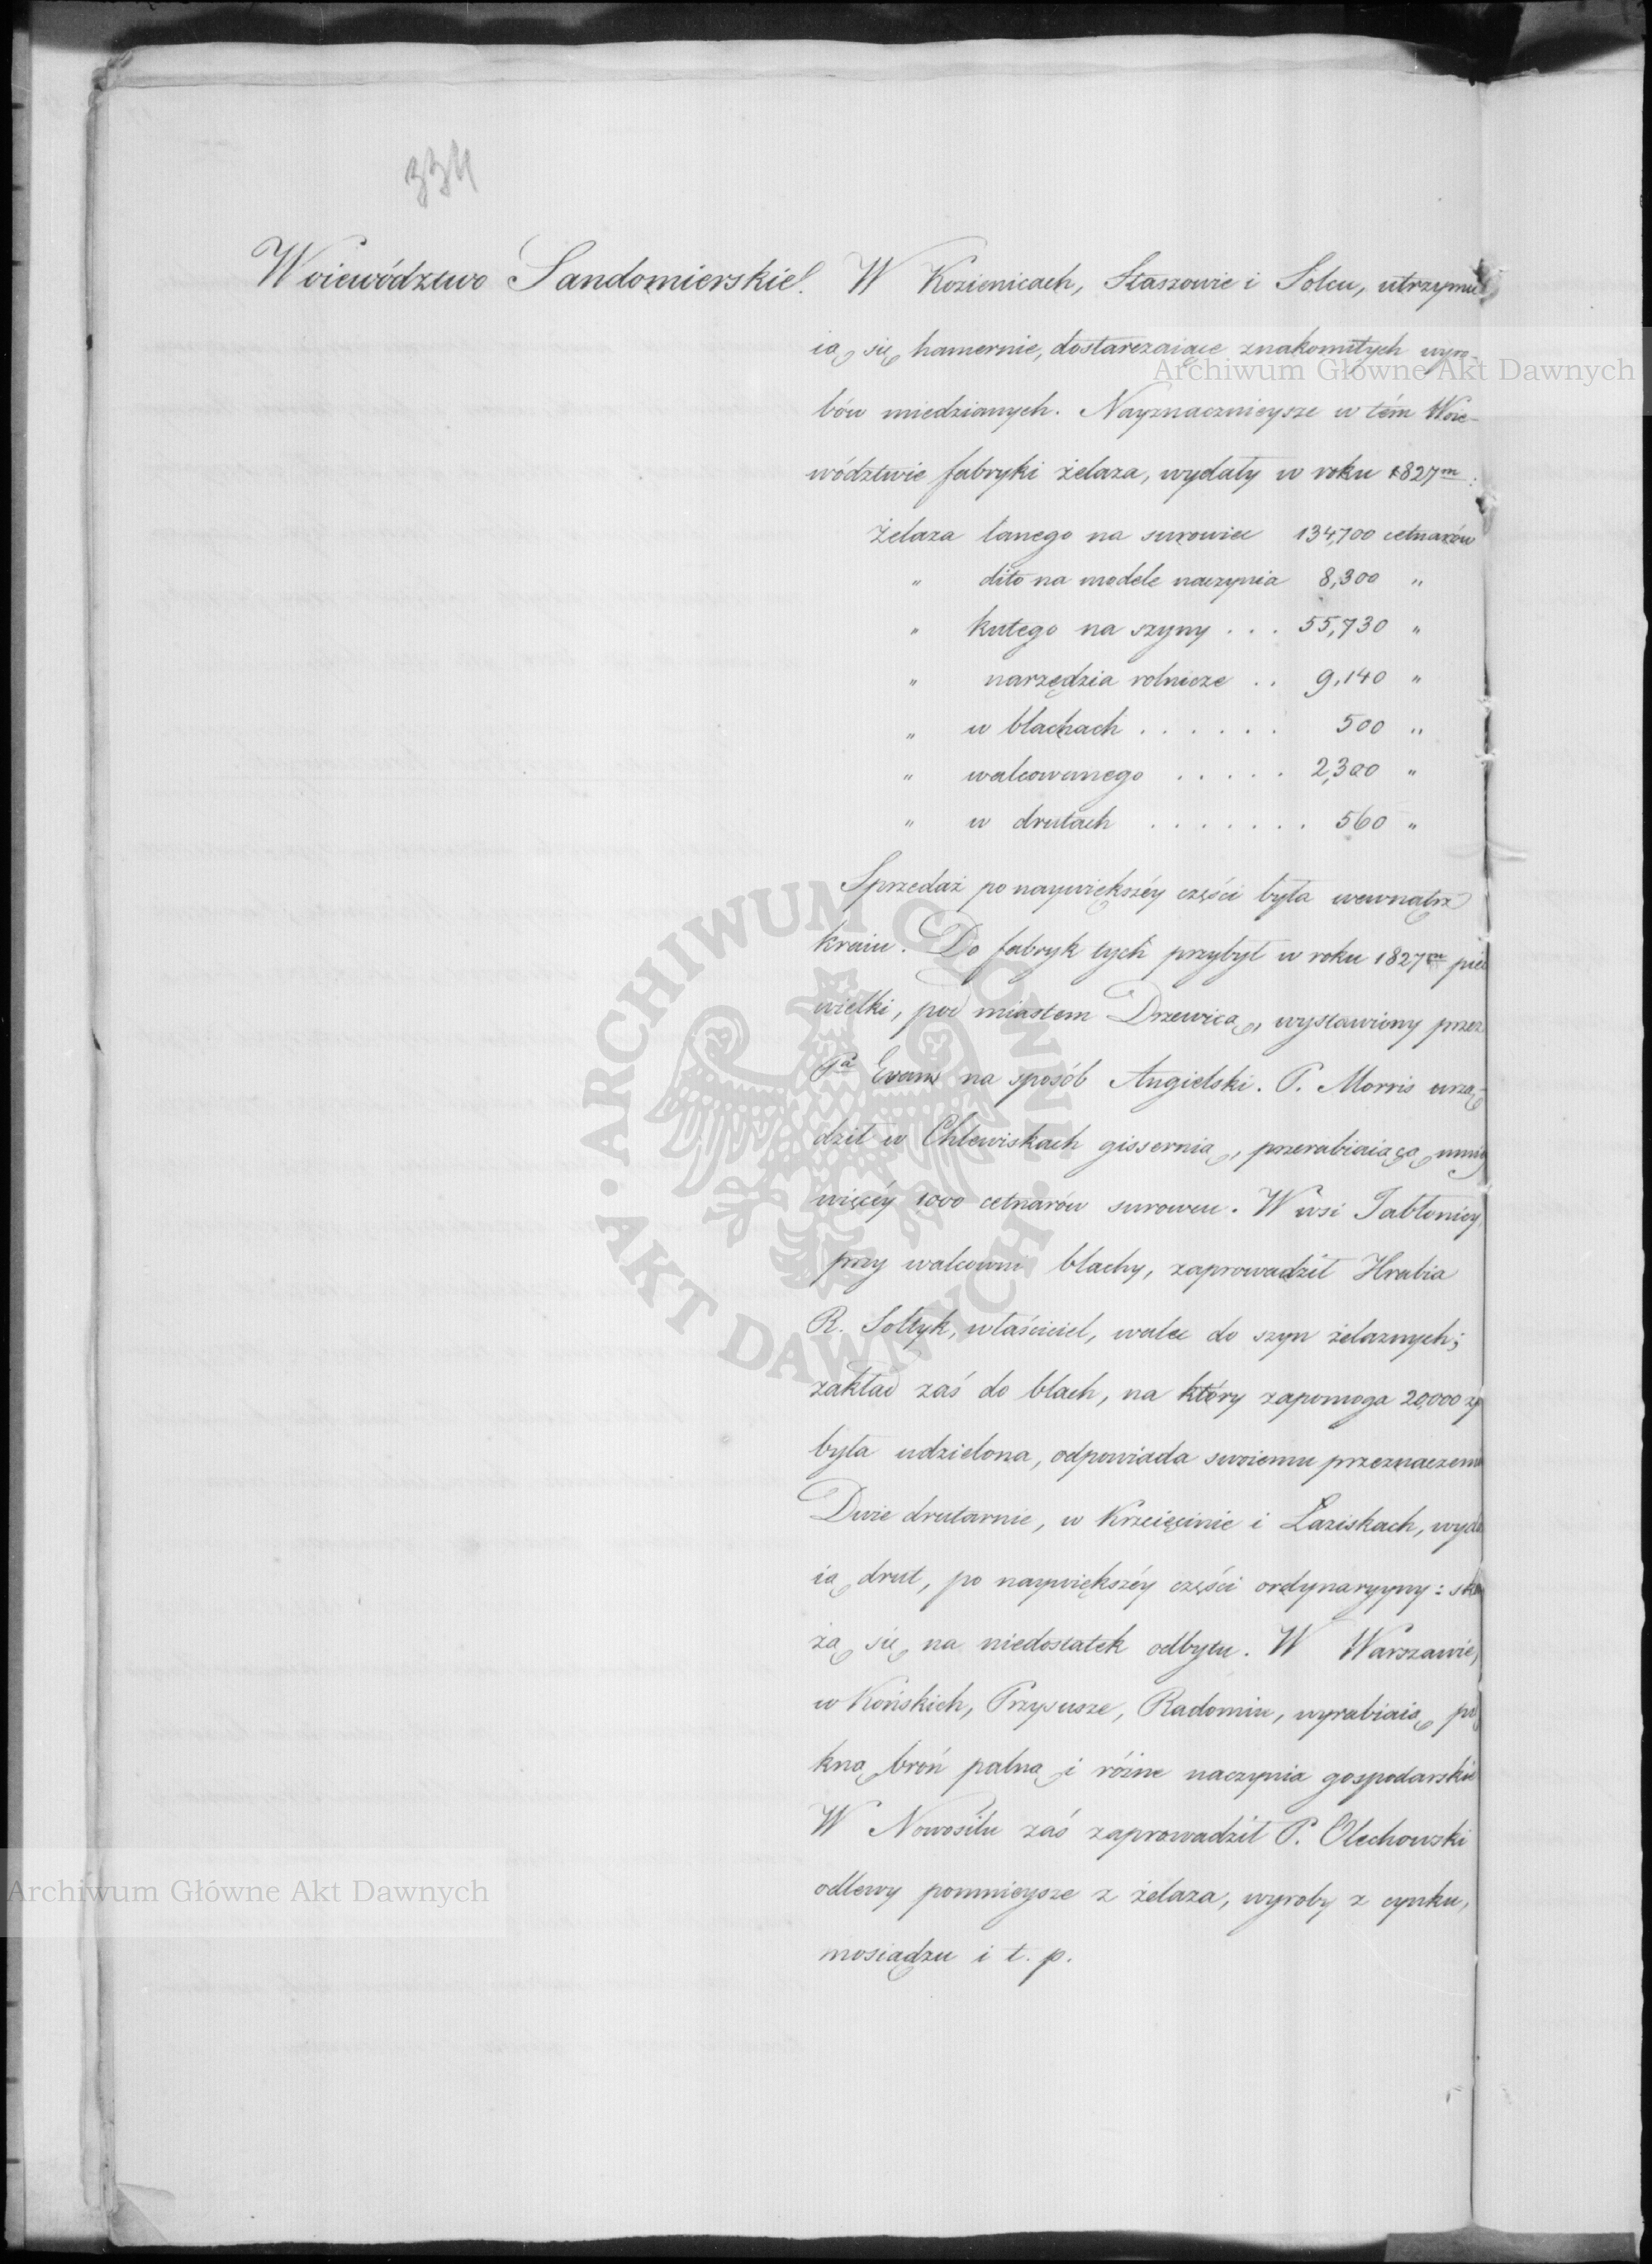 334
Woiewództwo Sandomierskie.
W Kozienicach, Staszowie i Solcu, utrzymu
ią się hamernie, dostarczaiące znakomitych wyro-
bów miedzianych. Nayznacznieysze w tém Woie-
wództwie fabryki żelaza, wydały w roku 1827m:
Żelaza lanego na surowiec 134,700 cetnarów
" dito na modele naczynia 8,300 "
" kutego na szyny . . . 55,730 "
" narzędzia rolnicze . . 9,140 "
" w blachach . . . . . . 500 "
" walcowanego . . . . . 2,300 "
" w drutach . . . . . . . 560 "
Sprzedaż po naywiększéy części była wewnątrz
kraiu. Do fabryk tych przybył w roku 1827m piec
wielki, pod miastem Drzewicą, wystawiony przez
Pa Evans na sposób Angielski. P. Morris urzą-
dził w Chlewiskach gissernią, przerabiaiącą mniéy
więcéy 1000 cetnarów surowcu. W wsi Jabłonicy
przy walcowni blachy, zaprowadził Hrabia
R. Sołtyk, właściciel, walce do szyn żelaznych;
zakład zaś do blach, na który zapomoga 20,000 zł
była udzielona, odpowiada swoiemu przeznaczeniu
Dwie drutarnie, w Krzcięcinie i Łaziskach, wyda
ią drut, po naywiększéy części ordynaryyny: skar
żą się na niedostatek odbytu. W Warszawie,
w Końskich, Przysusze, Radomiu, wyrabiaią pię
kną broń palną i różne naczynia gospodarskie
W Nowosilu zaś zaprowadził P. Olechowski
odlewy pomnieysze z żelaza, wyroby z cynku,
mosiądzu i t. p.
Archiwum Główne Akt Dawnych
Archiwum Główne Akt Dawnych
ARCHIWUM GŁÓWNE AKT DAWNYCH